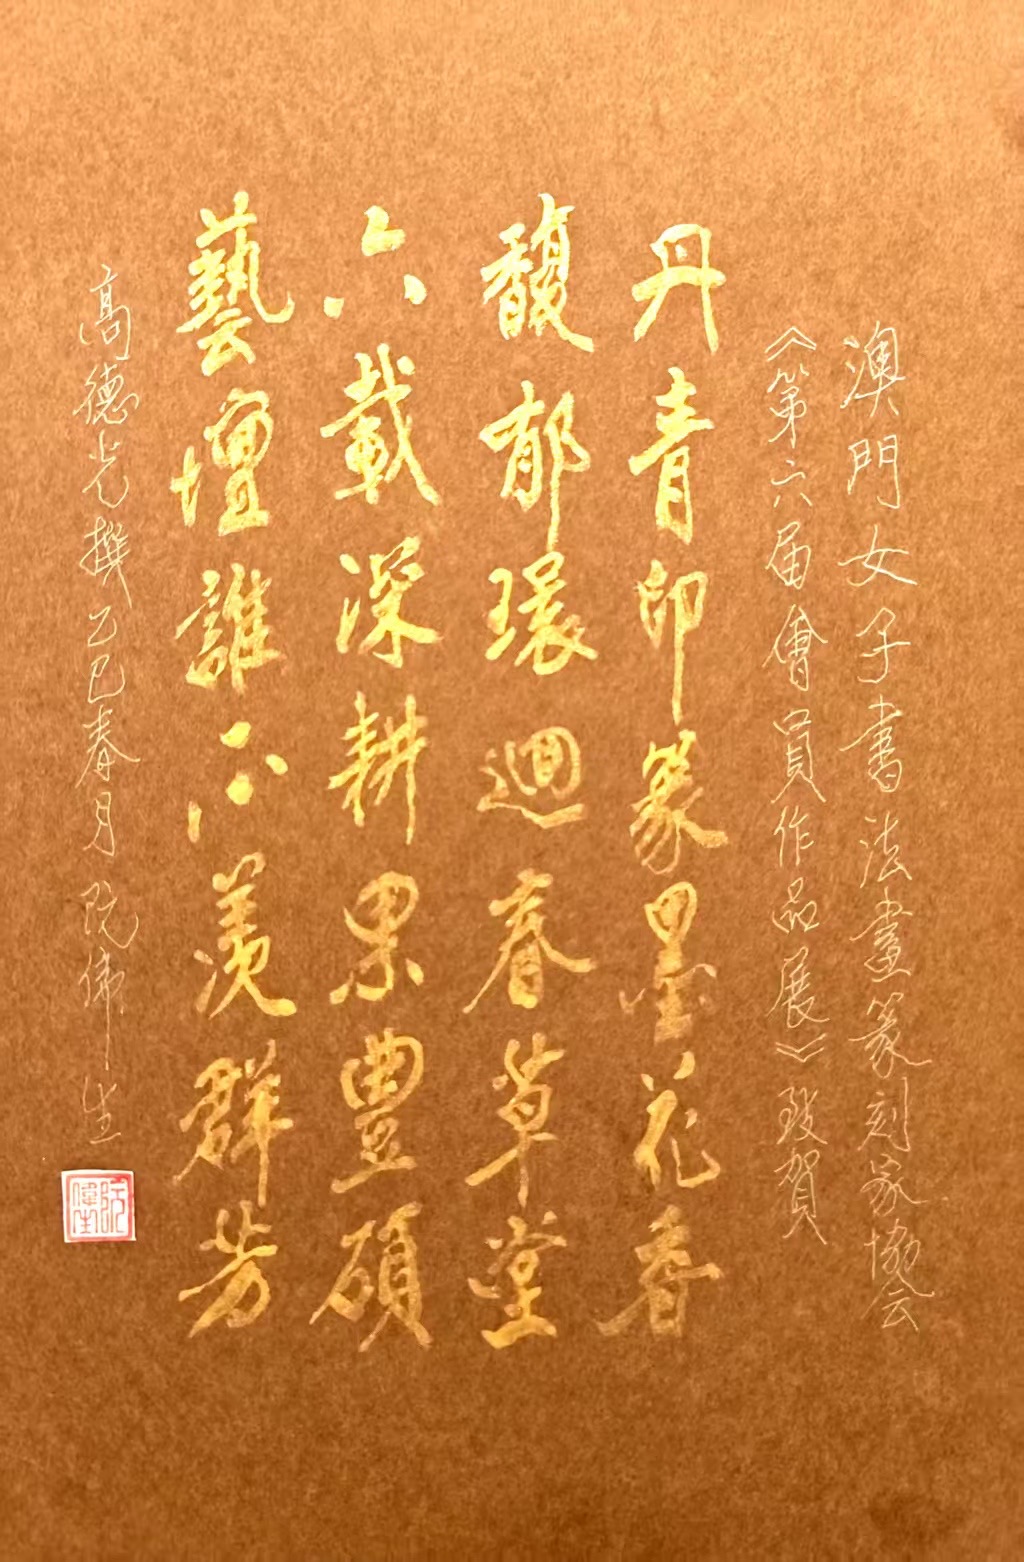 澳門女子書法畫篆刻家協会
《第六届會員作品展》致賀
丹青印篆墨花香
馥郁環迴春草堂
六載深耕果豊碩
藝壇誰不羡群芳
高德光撰乙巳春月阮偉生
阮偉生